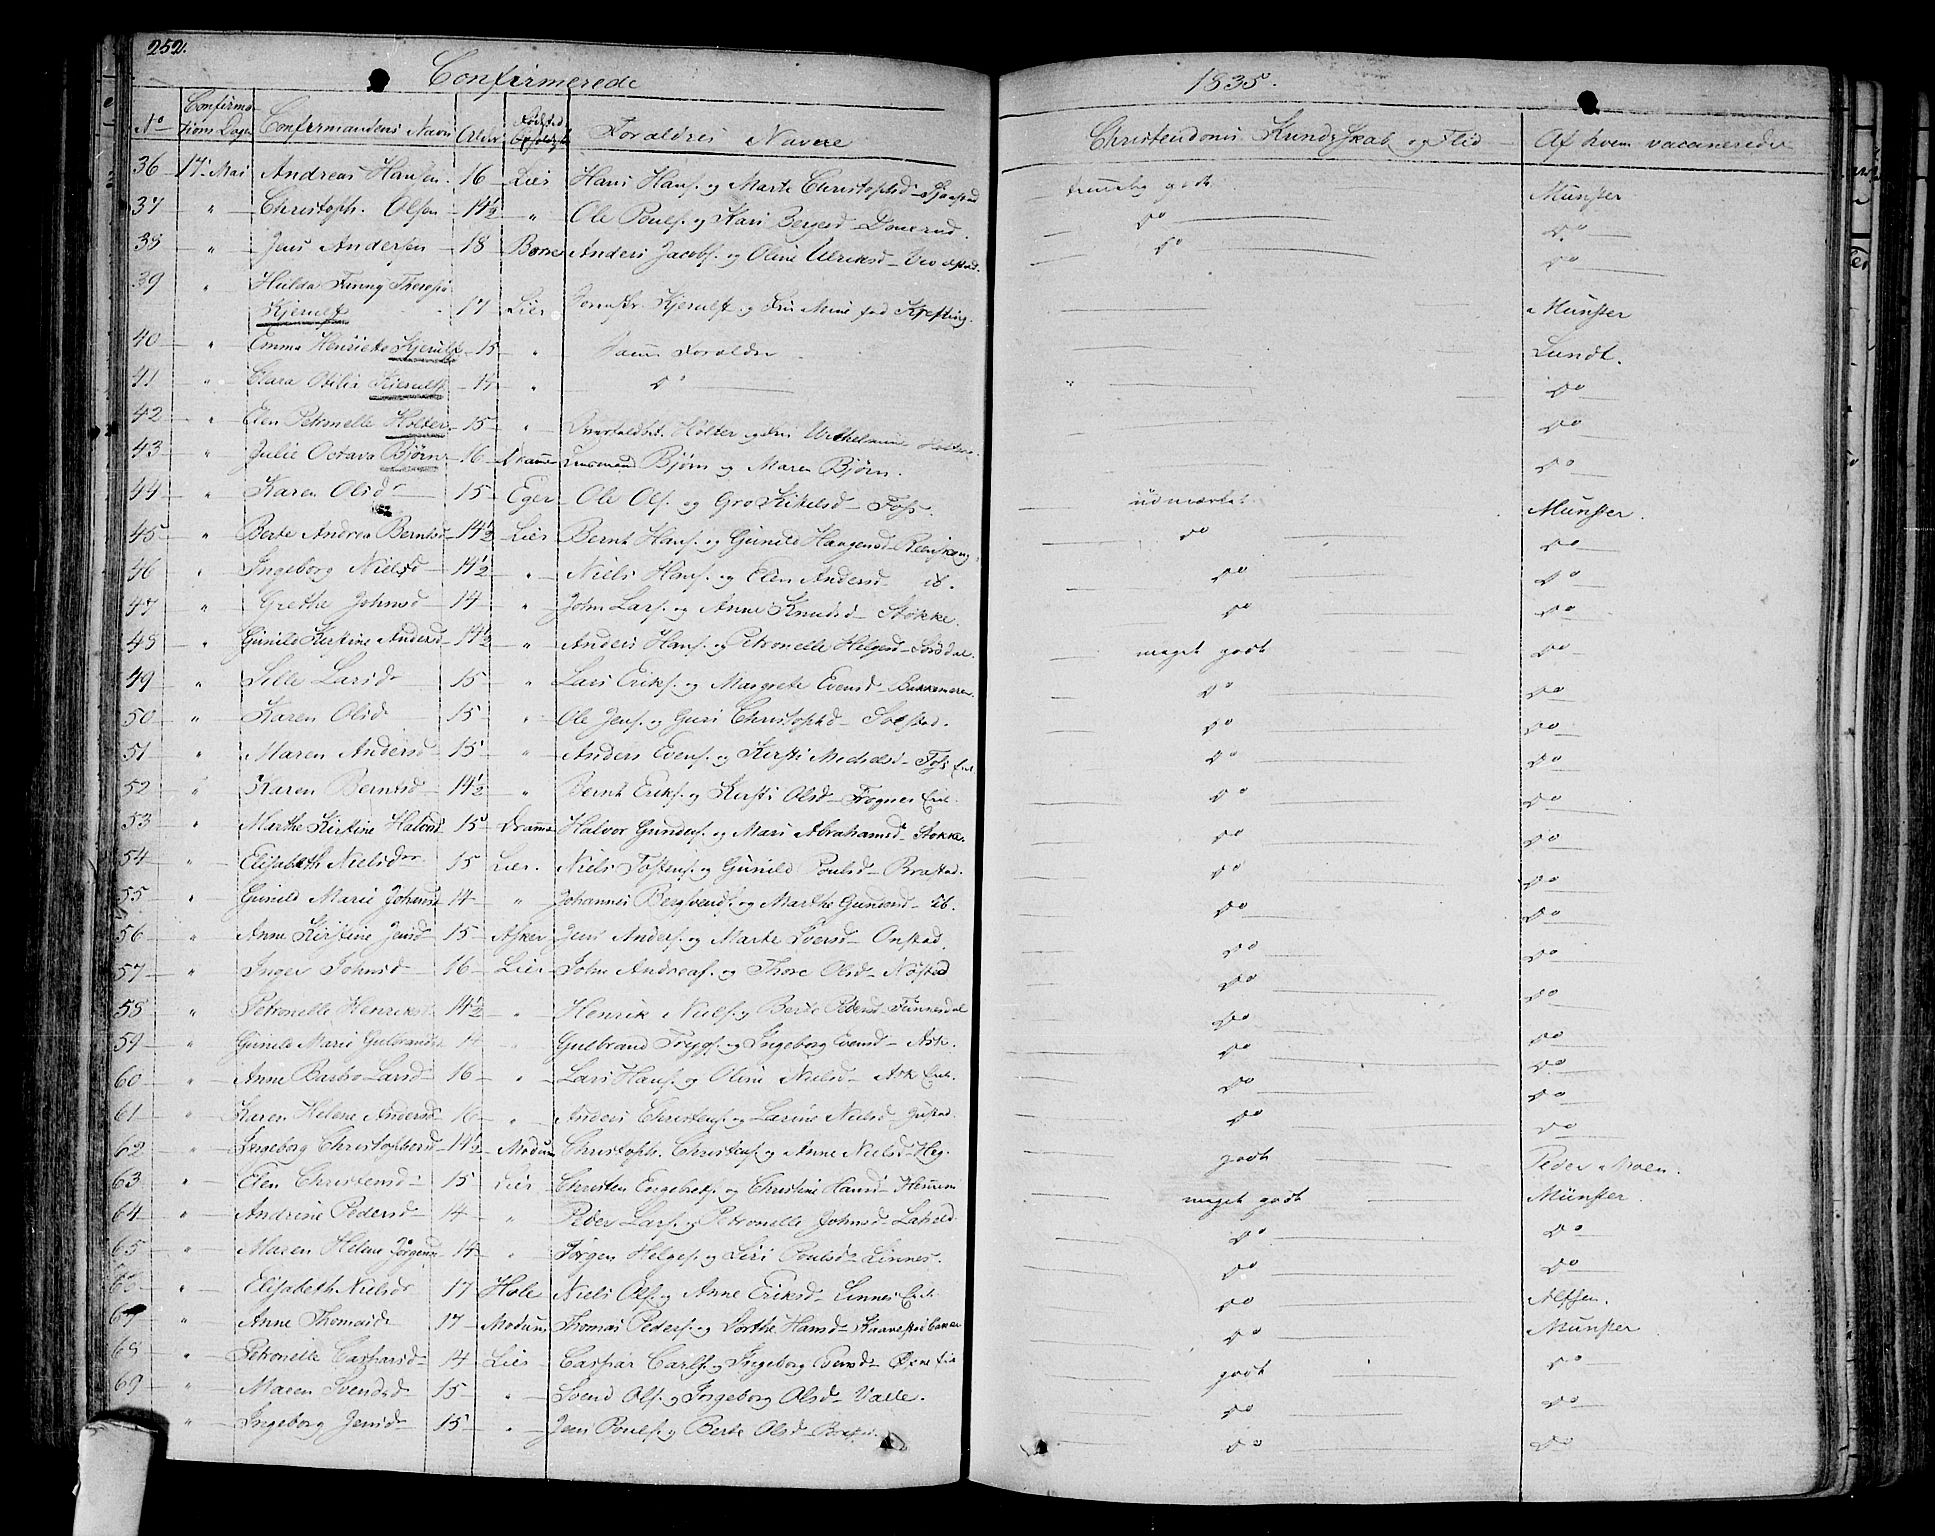 252.
Confirmerede 1835.
No Confirmations Dagen Confirmandens Navn Alder Forældres Navne Christendoms Kundskab og Flid Af hvem vaccinerede
36 17 Mai Andreas Hansen 16 Lier Hans Hans. og Marte Christophsd temmelig godt Münster
37 " Christoph. Olsen 14½ " Ole Pouls. og Kari Bergersd Do Do
38 " Jens Andersen 18 Anders Jacobs. og Oline Ulriksd Do Do
39 " Hulda Fanny
Kjerulf 17 Lier Kjerulf og Münster
40 " Emma Henriette Kjerulf 15 " Samme Forældre Lundt.
41 " Clara Otilia Kjerulf 14 " Do Do
42 " Elen Petronelle Holter 15 " Holter og Fru Wilhelmine Holter Do
43 " Julie Octava Bjørn 16 Bjørn og Maren Bjørn. Do
44 " Karen Olsd 15 Eger Ole Ols. og Gro Kittelsd Foss. udmærket Münster.
45 " Berte Andrea Berntsd 14½ Lier Bernt Hans. og Gunild Haagensd Do Do
46 " Ingeborg Nielsd 14½ " Niels Hans. og Elen Andersd ib. Do Do
47 " Grethe Johnsd 14 " John Lars. og Anne Knudsd Stokke. Do Do
48 " Gunild Kirstine Andersd 14½ " Anders Hans. og Petronelle Helgesd Sørsdal. meget godt Do
49 " Sille Larsd 15 " Lars Eriks. og Margrete Evensd Do Do
50 " Karen Olsd 15 " Ole Jens. og Guri Christophsd Solstad. Do Do
51 " Maren Andersd 15 " Anders Evens. og Kirsti Michelsd Foss Eie. Do Do
52 " Karen Berntsd 14½ " Bernt Eriks. og Kirsti Olsd Eie. Do Do
53 " Marthe Kirstine Halvorsd 15 Dramm Halvor Gunders. og Mari Abrahamsd Stokke. Do Do
54 " Elisabeth Nielsdr 15 Lier. Niels Tostens. og Gunild Poulsd Brastad. Do Do
55 " Gunild Marie Johansd 14 " Johannes Bergsvends. og Marthe Gundersd ib. Do Do
56 " Anne Kirstine Jensd 15 Asker Jens Anders. og Marte Iversd Onstad. Do Do
57 " Inger Johnsd 16 Lier John Andreas. og Thore Olsd Nøstad Do Do
58 " Petronelle Henriksd 14½ " Henrik Niels. og Berte Pedersd Do Do
59 " Gunild Marie Gulbrandsd 14 " Gulbrand Trygs. og Ingeborg Evensd Ask. Do Do
60 " Anne Barbro Larsd 16 " Lars Hans. og Oline Nielsd Ask Eie. Do Do
61 " Karen Helene Andersd 16 " Anders Christens. og Larine Nielsd Gustad. Do Do
62 " Ingeborg Christophersd 14½ Modum Christoph. Christens. og Anne Nielsd Heg. godt Peder Moen.
63 " Elen Christensd 15 Lier Christen Engebrets. og Christine Hansd meget godt Münster.
64 " Andrine Pedersd 14 " Peder Lars. og Petronelle Johnsd Do Do
65 " Maren Helene Jørgensd 14 " Jørgen Helges. og Siri Poulsd Linnes. Do Do
" Elisabeth Nielsd 17 Hole Niels Ols. og Anne Eriksd Linnes Eie. Do Alfsen.
67 " Anne Thomasd 17 Modum Thomas Peders. og Dorthe Hansd Do Münster
68 " Petronelle Caspersd 14 Lier Caspar Carls. og Ingeborg Evensd godt Do
69 " Maren Svendsd 15 " Svend Ols. og Ingeborg Olsd Valle. Do Do
" Ingeborg Jensd 15 " Jens Pouls. og Berte Olsd Do Do